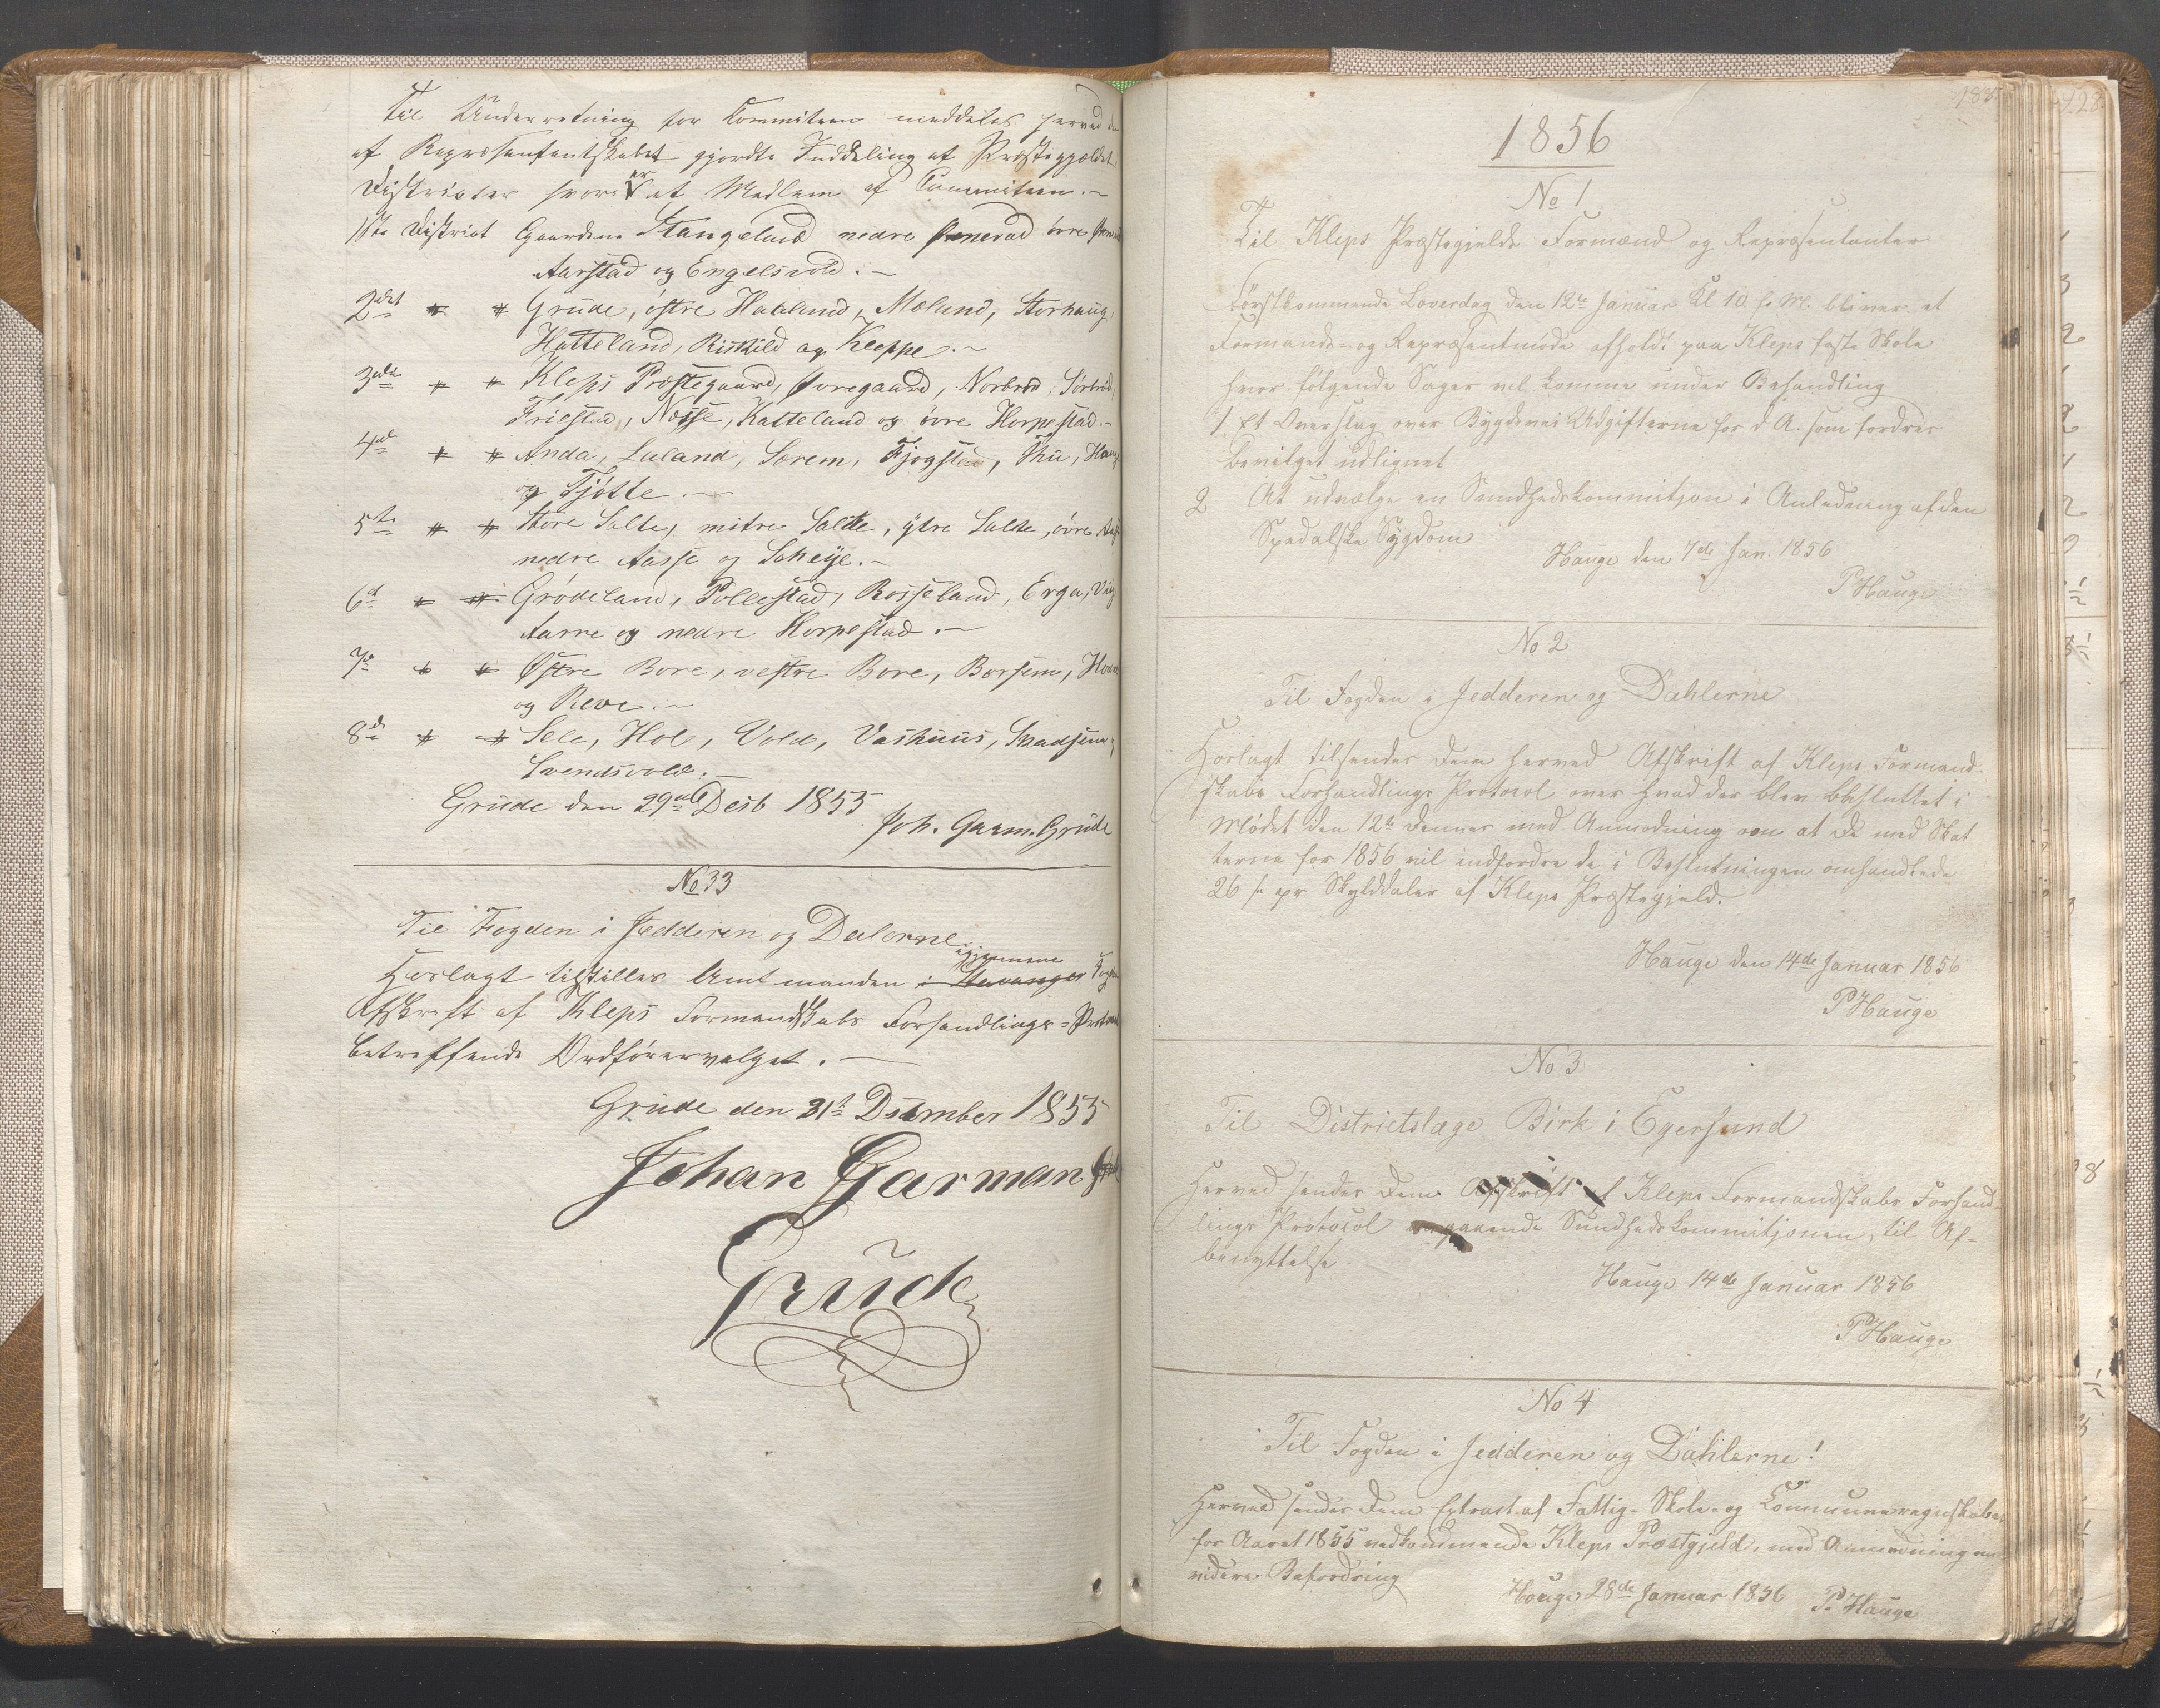 Til Underretning for Commiteen meddeles herved
af Repræsentantskabet gjordte Inddeling af Præstegjeldet
Districter hvori er et Medlem af Commiteen.-
1ste District Gaardene Stangeland nedre øvre
Aarstad og Engelsvold.-
2det " " Grude, østre Haaland, Mæland, Storhaug,
Hatteland, Riskild og Kleppe.-
3die " " Kleps Præstegaard, Øvregaard, Nordbrød, Sørbrød
Friestad, Næsse, Katteland og övre Horpestad.-
4de " " Anda, Laland, Sørem, Fjogstad, Thu,
og Tjøtte.-
5te " " Store Salte, mitre Salte, ytre Salte, övre
nedre Aasse og Laheye.-
6te " " Grødeland, Pollestad, Rosseland, Erga, Vig
Aarre og nedre Horpestad.-
7de " " Østre Bore, vestre Bore, Borsem,
og Reve.-
8de " " Sele, Hol, Vold, Vashuus, Skadsem,
Svendsvold.-
Grude den 29de Desb 1855
Joh. Garm. Grude
No 33
Til Fogden i Jedderen og Dalerne
igjennem
Herlagt tilstilles Amtmanden i Stavanger
Afskrift af Kleps Formandskabs Forhandlings-
betreffende Ordførervalget.-
Grude den 31te Desember 1855
Johan Garman
Grude
183
1856
No 1
Til Kleps Præstegjelds Formænd og Repræsentanter
Førstkommende Løverdag den 12te Januar Kl 10 f. M. bliver et
Formands- og Repræsentmøde afholdt paa Kleps faste Skole
hvor følgende Sager vil komme under Behandling
1 Et Overslag over Bygdevei Udgifterne for d. A. som fordres
bevilget udlignet
2 At udvælge en Sundhedskommitjon i Anledning af den
Spedalske Sygdom
Hauge den 7de Jan. 1856
P Hauge
No 2
Til Fogden i Jedderen og Dahlerne
Herlagt tilsendes Dem herved Afskrift af Kleps Formand-
skabs Forhandlings Protocol over hvad der blev besluttet i
Mødet den 12te dennes med Anmodning om at De med Skat
terne for 1856 vil indfordre de i Beslutningen omhandlede
26 s pr Skylddaler af Kleps Præstegjeld.
Hauge den 14de Januar 1856
P Hauge
No 3
Til Districtslæge Birk i Egersund
Herved sendes Dem Afskrift af Kleps Formandskabs Forhand-
lings Protocol angaaende Sundhedskommitjonen, til Af-
benyttelse
Hauge 14de Januar 1856
P Hauge
No 4
Til Fogden i Jedderen og Dahlerne!
Herved sendes Dem Extract af Fattig- Skole- og Communeregnskaber
for Aaret 1855 vedkommende Kleps Præstgjeld, med Anmodning om
videre Befordring
Hauge 28de Januar 1856 P. Hauge